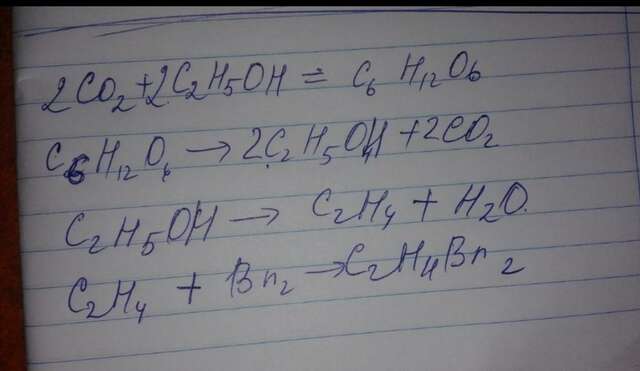 2CO2+2C2H5OH = C6H12O6
C6H12O6 → 2C2H5OH + 2CO2
C2H5OH → C2H4 + H2O.
C2H4 + Br2 → C2H4Br2